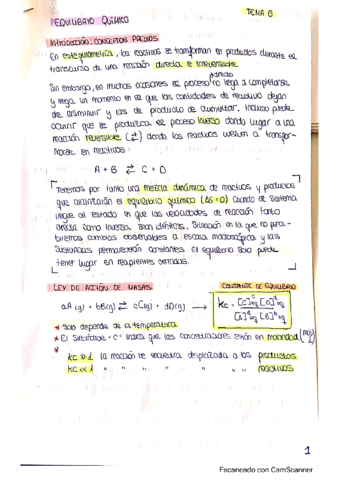 TEMA 6
EQUILIBRIO QUÍMICO
Introducción. CONCEPTOS PREVIOS
En estequiometría, los reactivos se transforman en productos durante el
transcurso de una reacción directa e irreversible
Sin embargo, en muchas ocasiones el proceso no llega a completarse
y llega un momento en el que las cantidades de reactivo dejan
de disminuir y las de producto de aumentar. Incluso puede
ocurrir que se produzca el proceso inverso dando lugar a una
reacción reversible (⇄) donde los reactivos vuelven a transfor-
marse en reactivos:
A + B ⇄ C + D
Tenemos por tanto una mezcla dinámica de reactivos y productos
que alcanzarán el equilibrio químico (ΔG=0) cuando el sistema
llegue al estado en que las velocidades de reacción tanto
directa como inversa sean idénticas. Situación en la que no perci-
biremos cambios observables a escala macroscópica y las
sustancias permanecerán constantes. El equilibrio solo puede
tener lugar en recipientes cerrados.
LEY DE ACCIÓN DE MASAS
CONSTANTE DE EQUILIBRIO
aA (g) + bB(g) ⇄ cC(g) + dD(g) → Kc = [C]^c eq [D]^d eq / [A]^a eq [B]^b eq
* Solo depende de la temperatura
* El subíndice "c" indica que las concentraciones están en molaridad (mol/l)
*
kc >> 1 la reacción se encuentra desplazada a los productos
kc << 1 " " " " " " reactivos
1
Escaneado con CamScanner